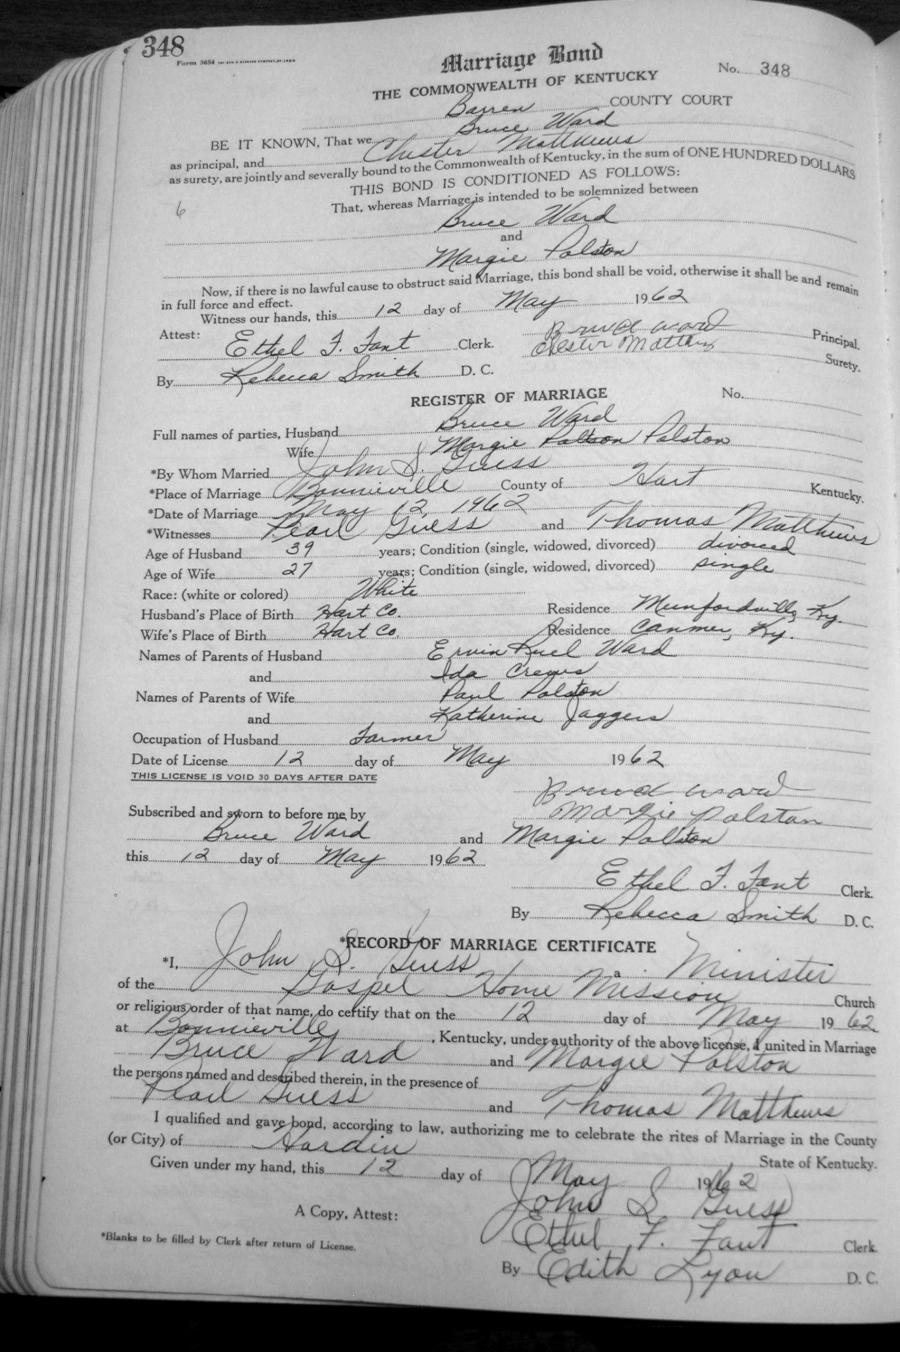 348
Form 3654
Marriage Bond
No. 348
THE COMMONWEALTH OF KENTUCKY
Barren COUNTY COURT
BE IT KNOWN, That we Bruce Ward
as principal, and Chester Matthews
as surety, are jointly and severally bound to the Commonwealth of Kentucky, in the sum of ONE HUNDRED DOLLARS
THIS BOND IS CONDITIONED AS FOLLOWS:
6
That, whereas Marriage is intended to be solemnized between
Bruce Ward
and
Margie Polston
Now, if there is no lawful cause to obstruct said Marriage, this bond shall be void, otherwise it shall be and remain
in full force and effect.
Witness our hands, this 12 day of May 1962
Attest: Bruce Ward Principal.
Ethel F. Fant Clerk. Chester Matthews Surety.
By Rebecca Smith D. C.
REGISTER OF MARRIAGE No.
Full names of parties, Husband Bruce Ward
Wife Margie Polston Polston
*By Whom Married John S. Guess
*Place of Marriage Bonnieville County of Hart Kentucky.
*Date of Marriage May 12, 1962
*Witnesses Pearl Guess and Thomas Matthews
Age of Husband 39 years; Condition (single, widowed, divorced) divorced
Age of Wife 27 years; Condition (single, widowed, divorced) single
Race: (white or colored) White
Husband's Place of Birth Hart Co. Residence Munfordville, Ky.
Wife's Place of Birth Hart Co. Residence Canmer, Ky.
Names of Parents of Husband Ervin Ruel Ward
and Ida Crews
Names of Parents of Wife Paul Polston
and Katherine Jaggers
Occupation of Husband Farmer
Date of License 12 day of May 1962
THIS LICENSE IS VOID 30 DAYS AFTER DATE
Bruce Ward
Margie Polston
Subscribed and sworn to before me by
Bruce Ward and Margie Polston
this 12 day of May 1962
Ethel F. Fant Clerk.
By Rebecca Smith D. C.
*RECORD OF MARRIAGE CERTIFICATE
*I, John S. Guess a Minister
of the Gospel Home Mission Church
or religious order of that name, do certify that on the 12 day of May 1962
at Bonnieville, Kentucky, under authority of the above license, I united in Marriage
Bruce Ward and Margie Polston
the persons named and described therein, in the presence of
Pearl Guess and Thomas Matthews
I qualified and gave bond, according to law, authorizing me to celebrate the rites of Marriage in the County
(or City) of Hardin State of Kentucky.
Given under my hand, this 12 day of May 1962
John S. Guess
A Copy, Attest: Ethel F. Fant Clerk.
*Blanks to be filled by Clerk after return of License.
By Edith Lyon D. C.